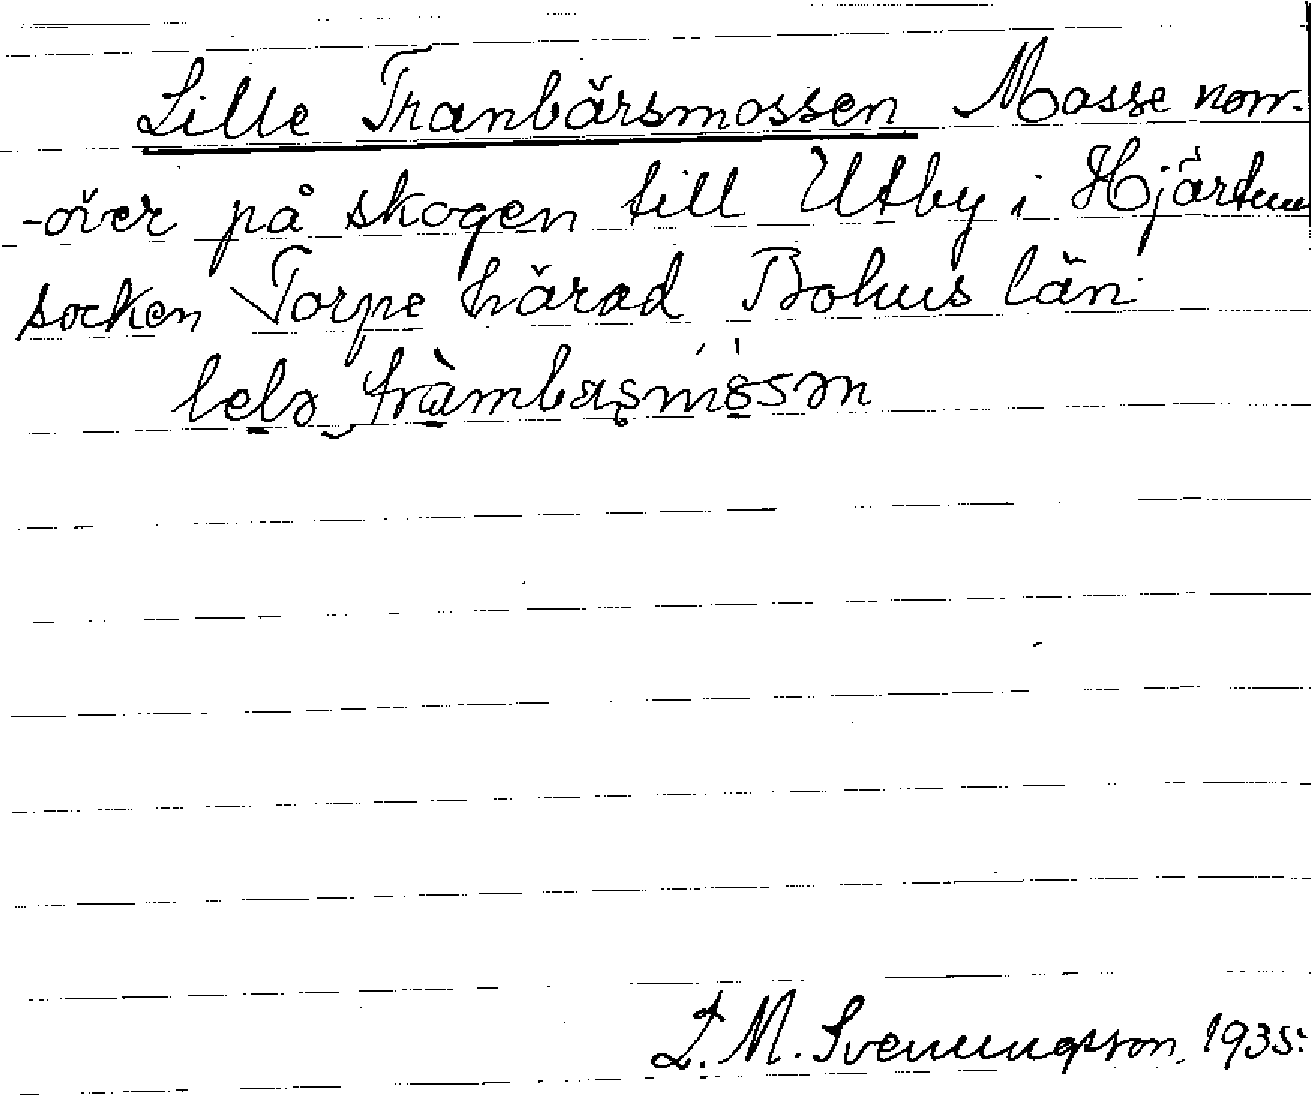 Lille Tranbärsmossen Mosse norr-
-över på skogen till Utby i Hjärtum
socken Torpe härad Bohus län
lelə fràmbaşmósən
L. M. Svenungsson. 1935.